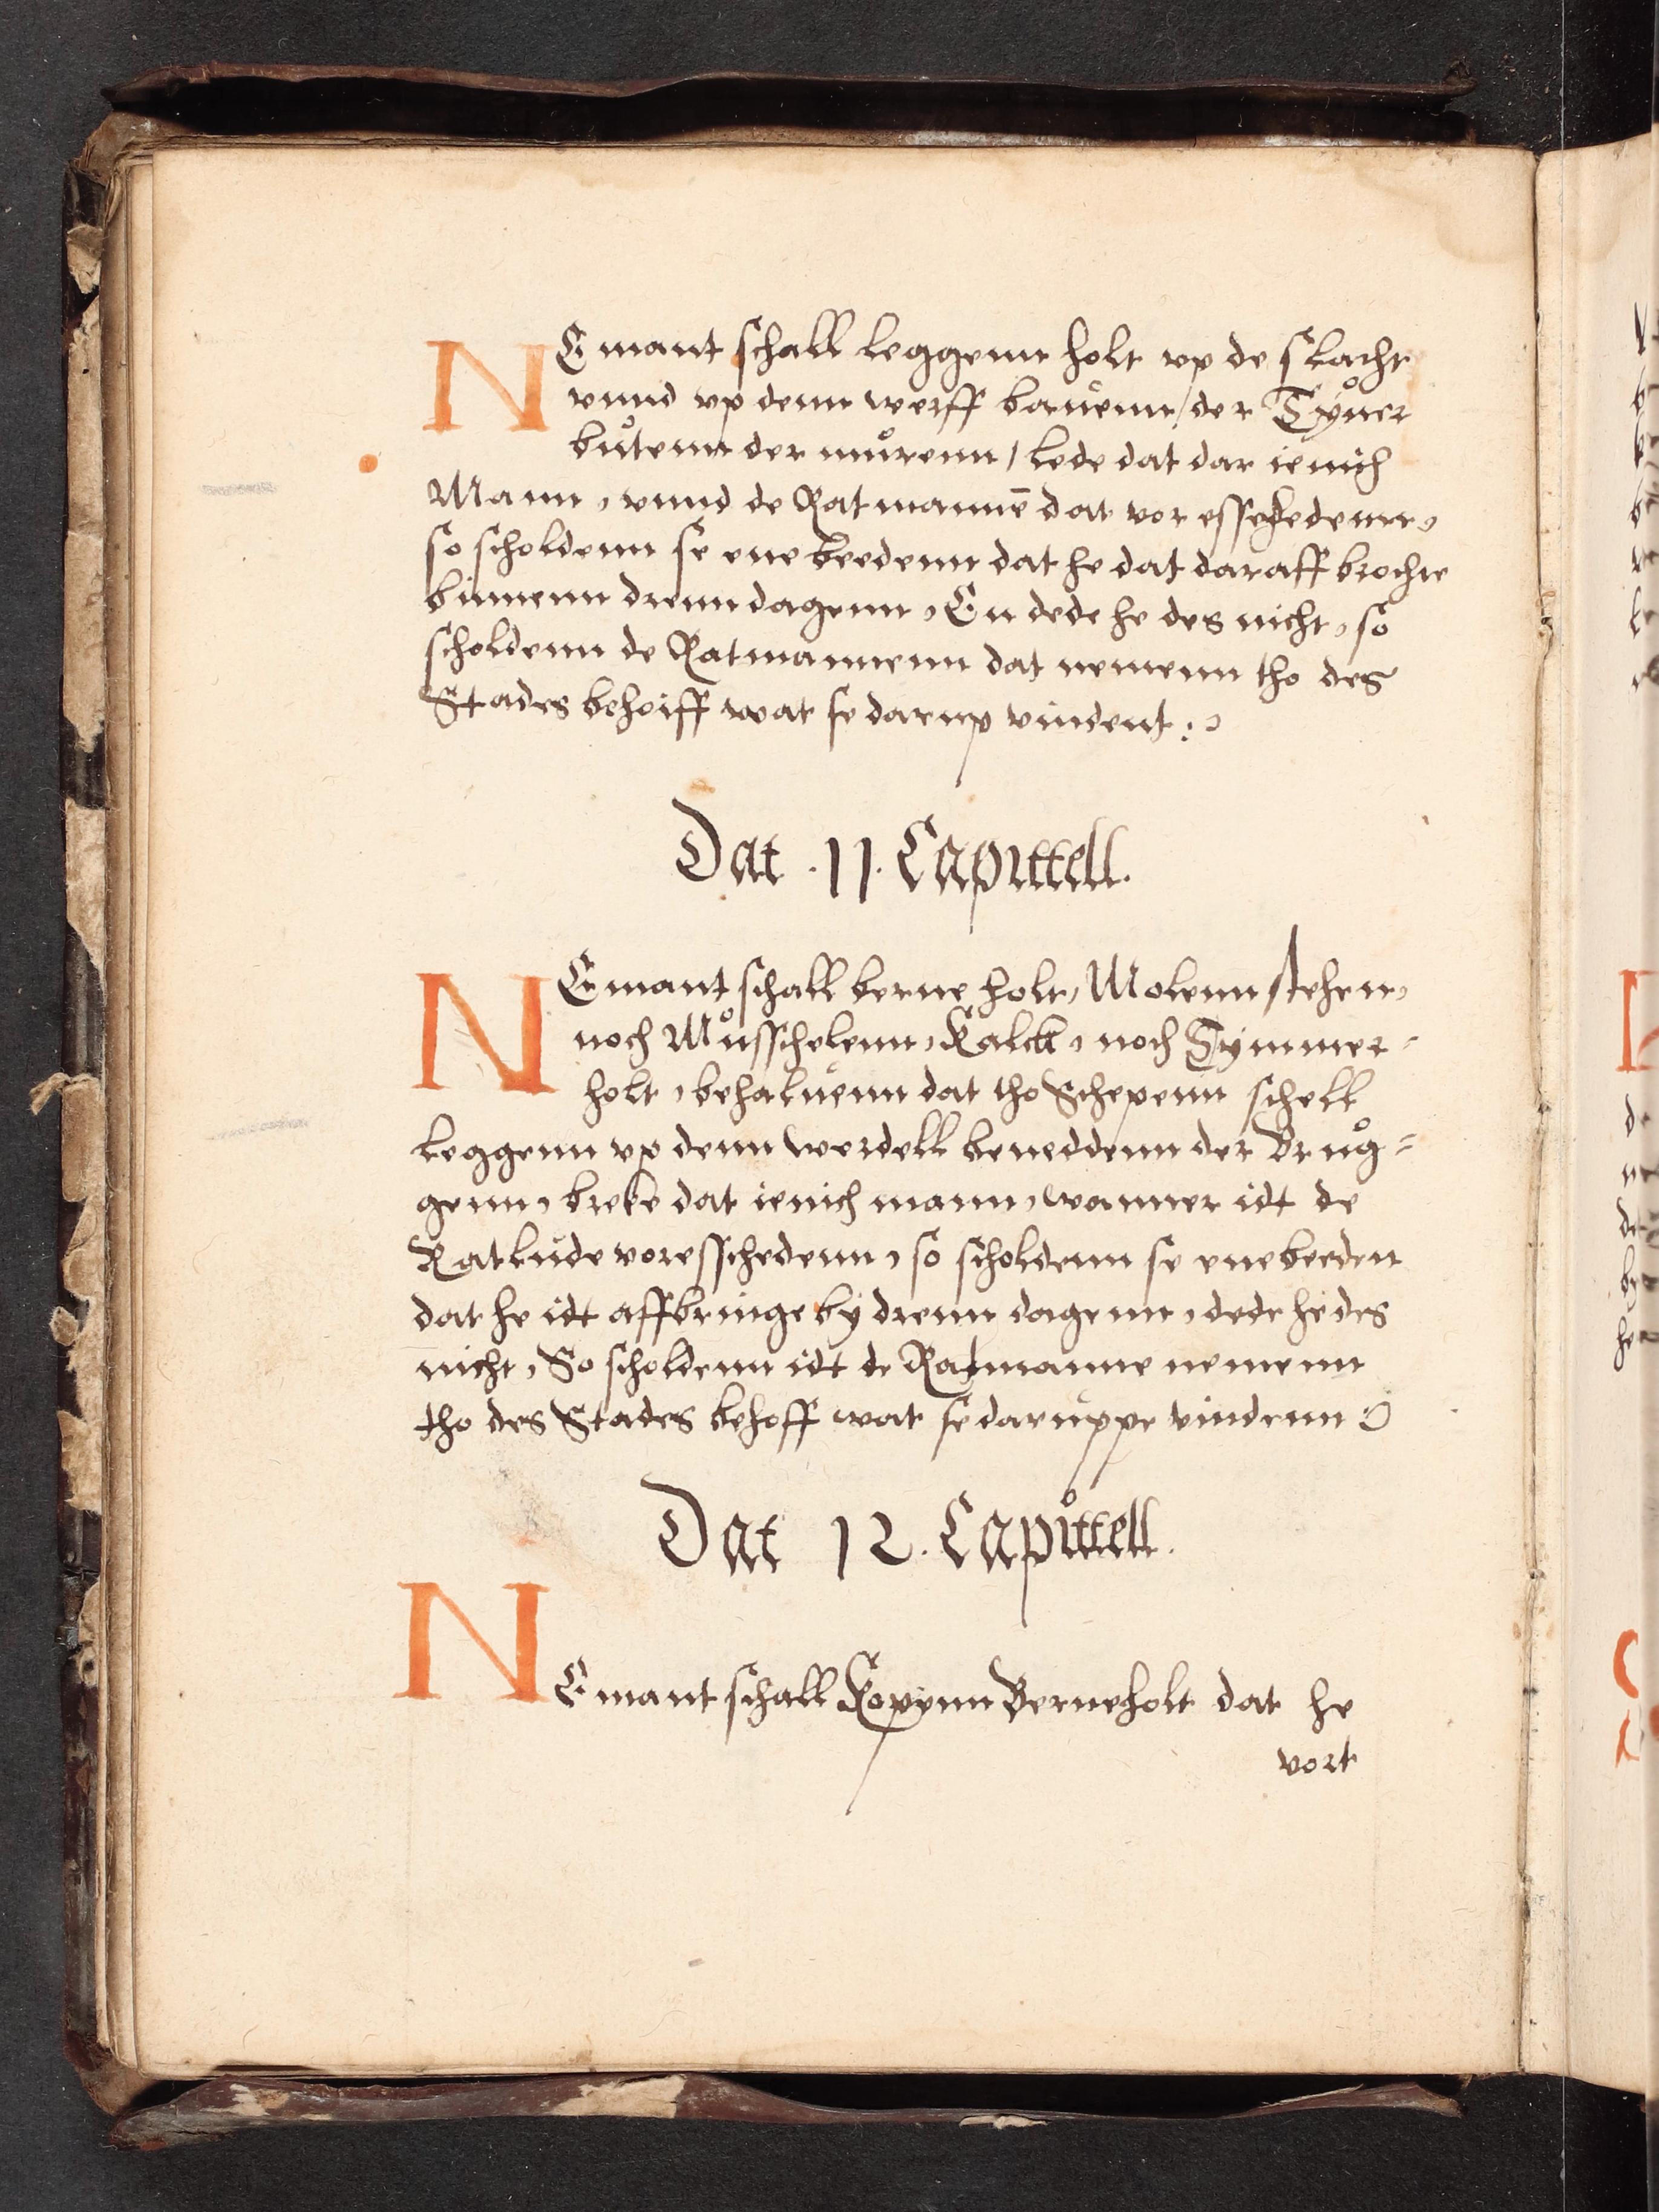 NEmant schall leggenn holt vp de slacht
vnnd vp denn werff bauenn/ der Tyner
butenn der murenn/ lede dat dar ienich
Mann, vnnd de Ratmannē dat vor esschedenn,
so scholdenn se ene beedenn dat he dat daraff brochte
binnenn drenn dagenn, En dede he des nicht, so
scholdenn de Ratmannenn dat nemenn tho des
Stades behoiff wat se darup vindent :
Dat .11. Capittell.
NEmant schall berne holt, Molenn stehen,
noch Musschelenn, Kalck, noch Tymmer=
holt, behaluenn dat tho Schepenn schell
leggenn vp denn werdell beneddenn der Brug=
genn, breke dat ienich mann, wanner idt de
Ratlude voresschedenn, so scholdenn se ene beeden
dat he idt affbringe by drenn dagenn, dede he des
nicht, So scholdenn idt de Ratmanne nemenn
tho des Stades behoff wat se daruppe vindenn
Dat 12. Capittell.
NEmant schall Kopenn Berneholt dat he
vort